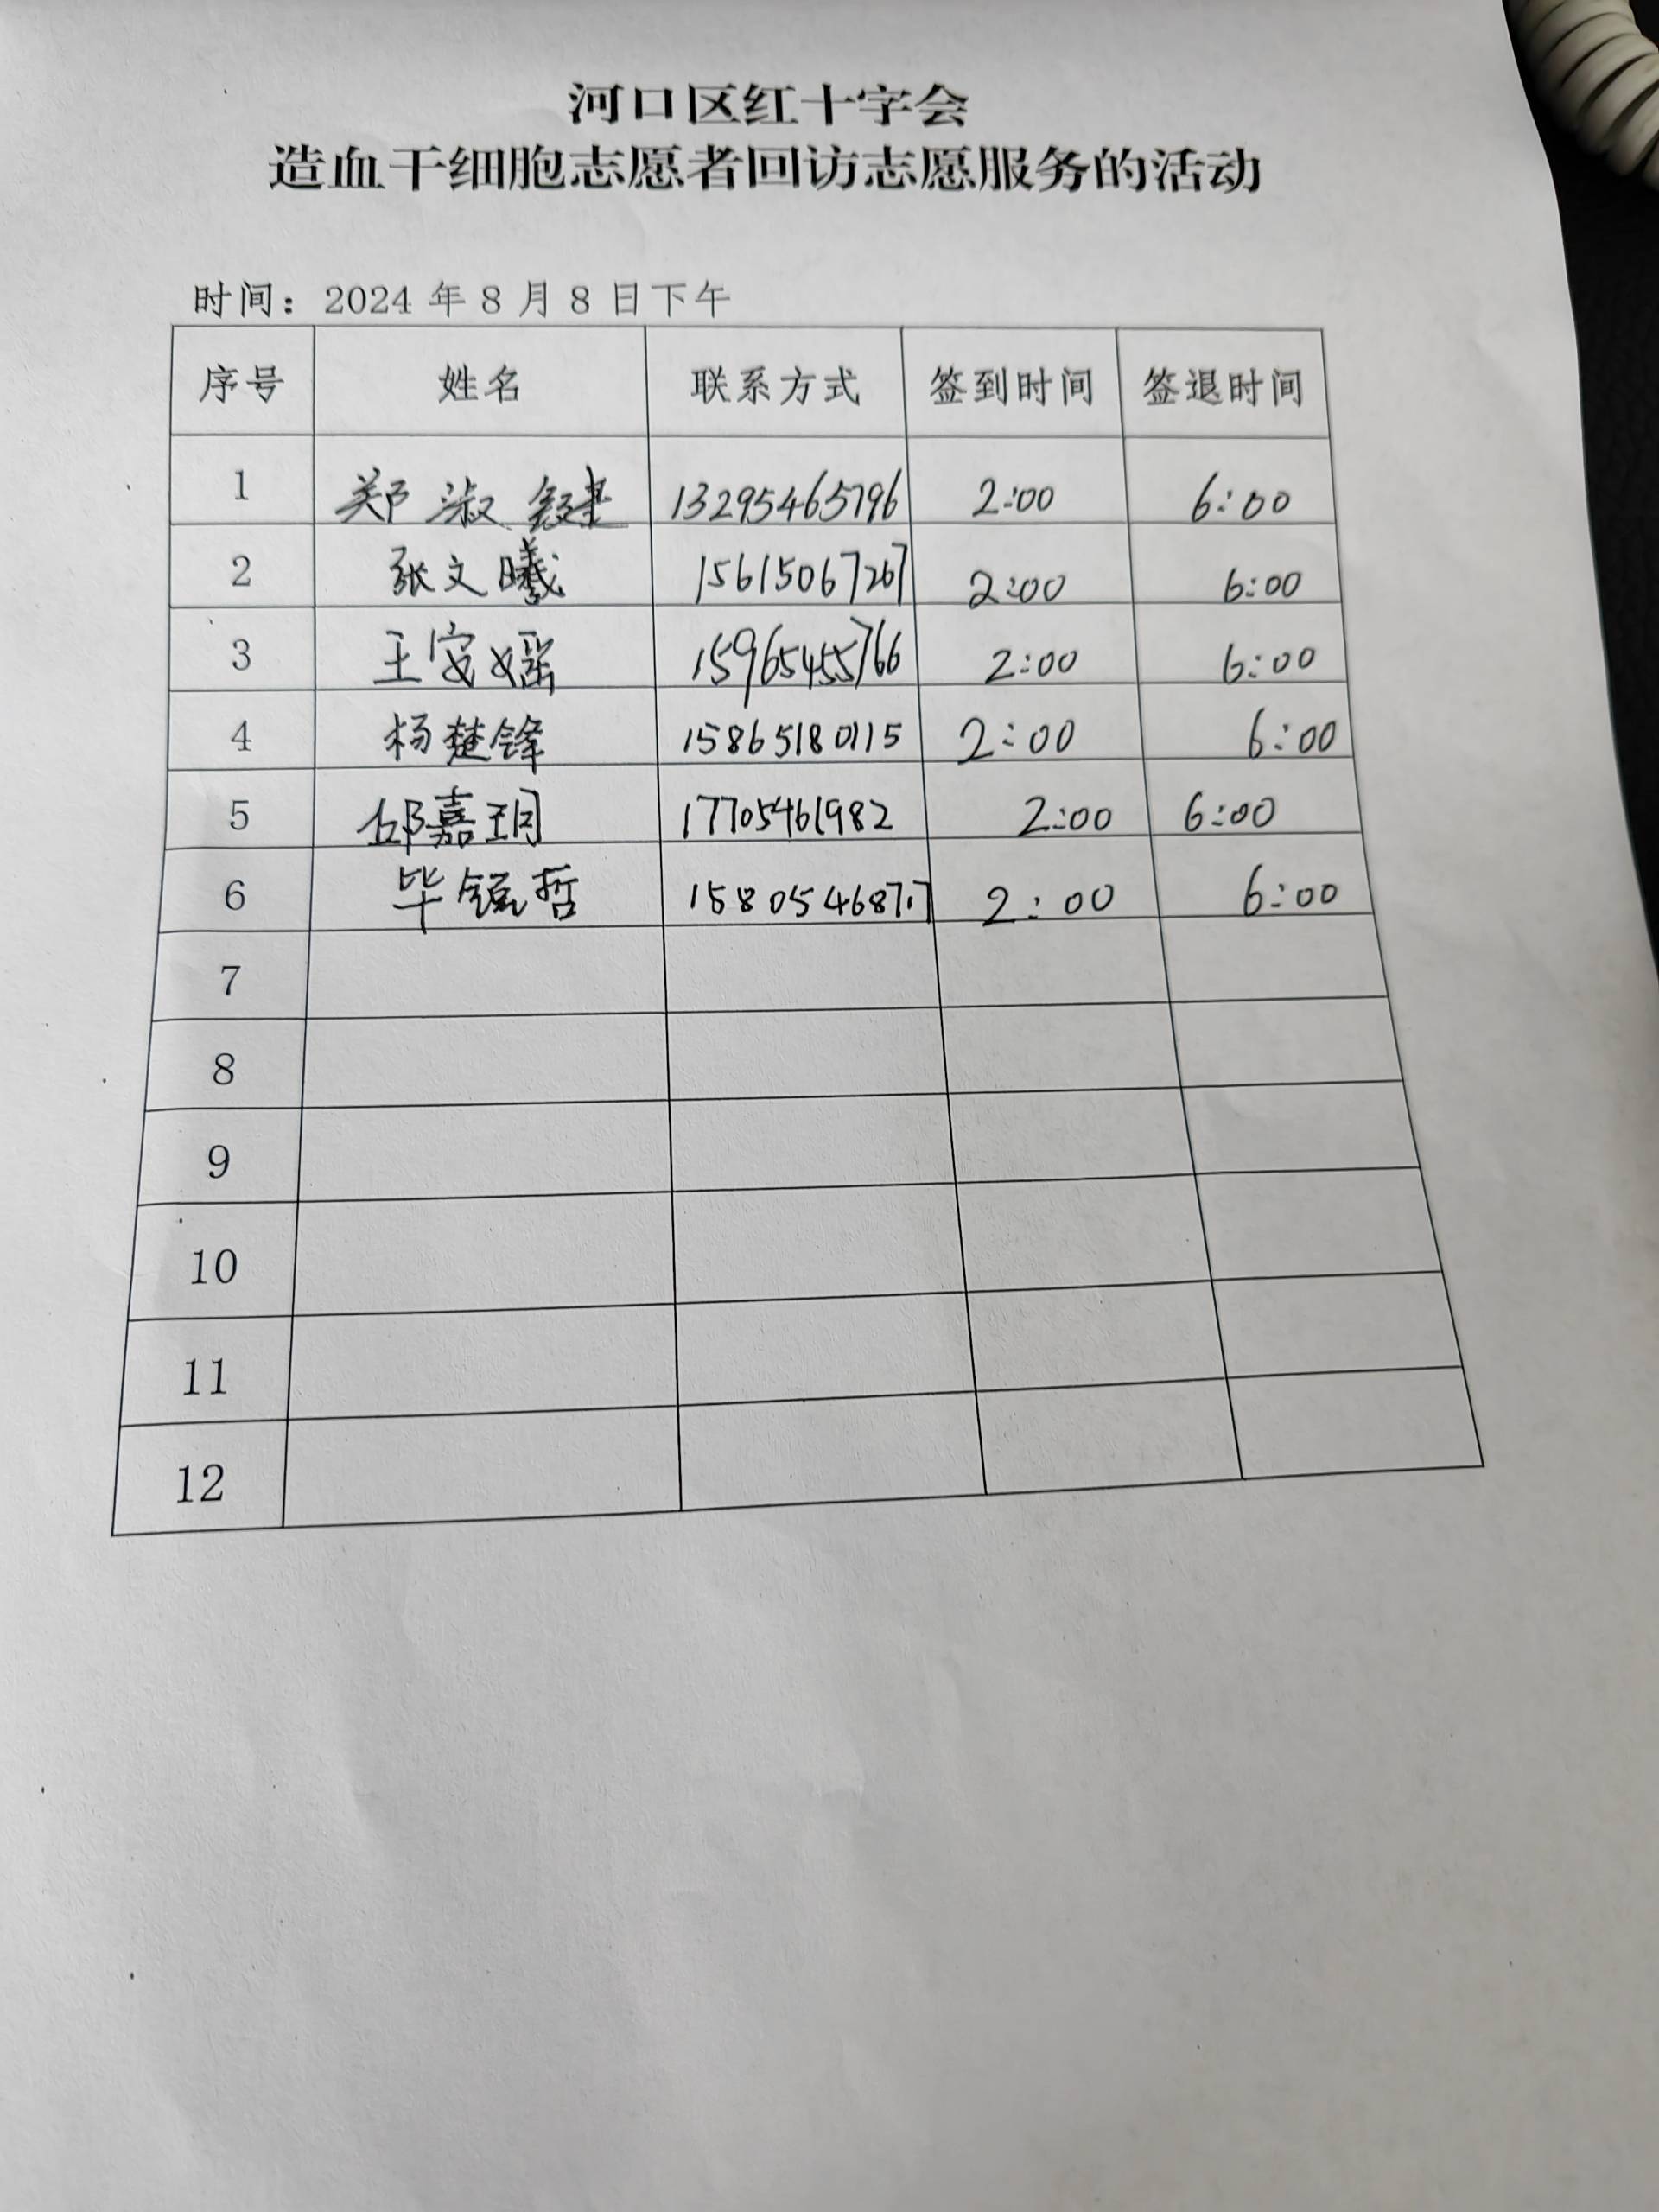 河口区红十字会
造血干细胞志愿者回访志愿服务的活动
时间：2024 年 8 月 8 日下午
序号 姓名 联系方式 签到时间 签退时间
1 郑淑 13295465796 2:00 6:00
2 张文曦 15615067267 2:00 6:00
3 王安瑶 15965455766 2:00 6:00
4 杨楚锋 15865180115 2:00 6:00
5 邱嘉玥 17705461982 2:00 6:00
6 毕镜哲 15805468717 2:00 6:00
7
8
9
10
11
12